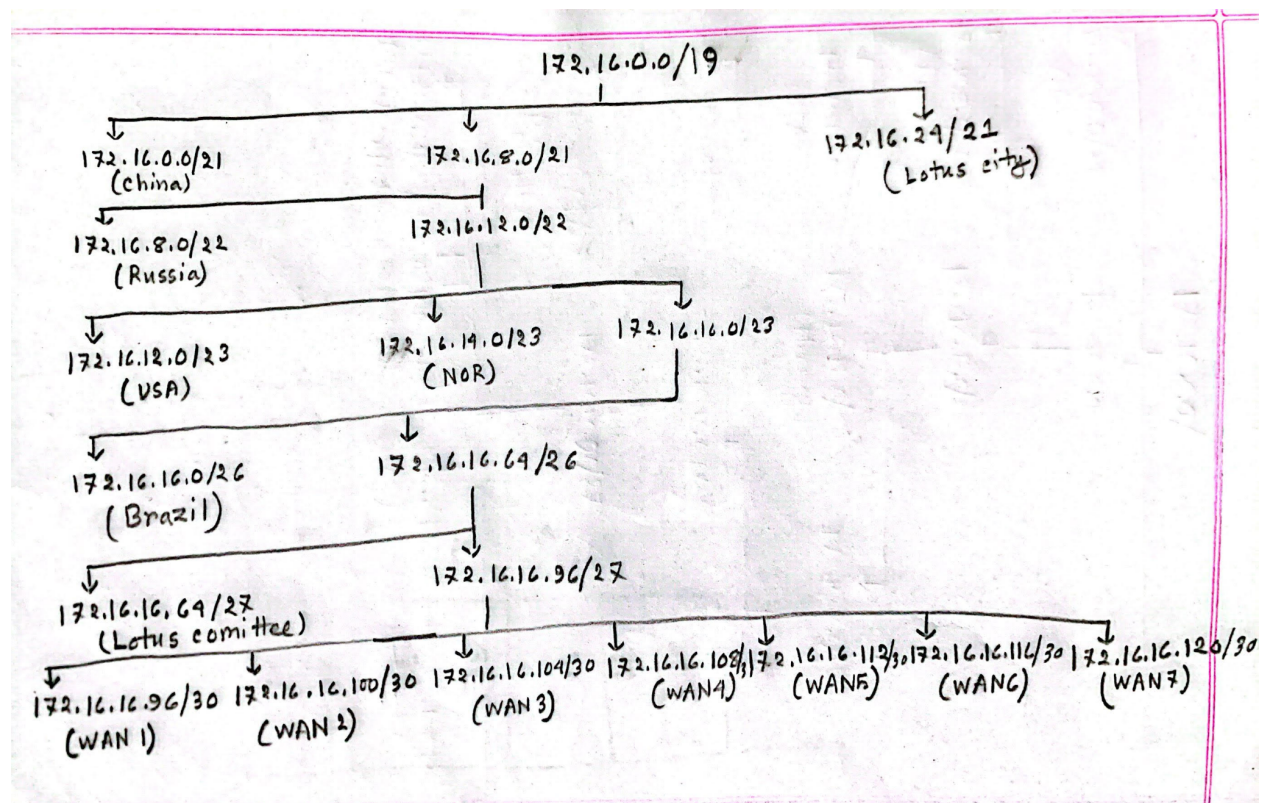 172.16.0.0/19
172.16.0.0/21
(China)
172.16.8.0/21
172.16.24/21
(Lotus city)
172.16.8.0/22
(Russia)
172.16.12.0/22
172.16.12.0/23
(USA)
172.16.14.0/23
(NOR)
172.16.16.0/23
172.16.16.0/26
(Brazil)
172.16.16.64/26
172.16.16.64/27
(Lotus comittee)
172.16.16.96/27
172.16.16.96/30
(WAN 1)
172.16.16.100/30
(WAN 2)
172.16.16.104/30
(WAN 3)
172.16.16.108/
(WAN4)
172.16.16.112/30
(WAN5)
172.16.16.116/30
(WAN6)
172.16.16.120/30
(WAN7)